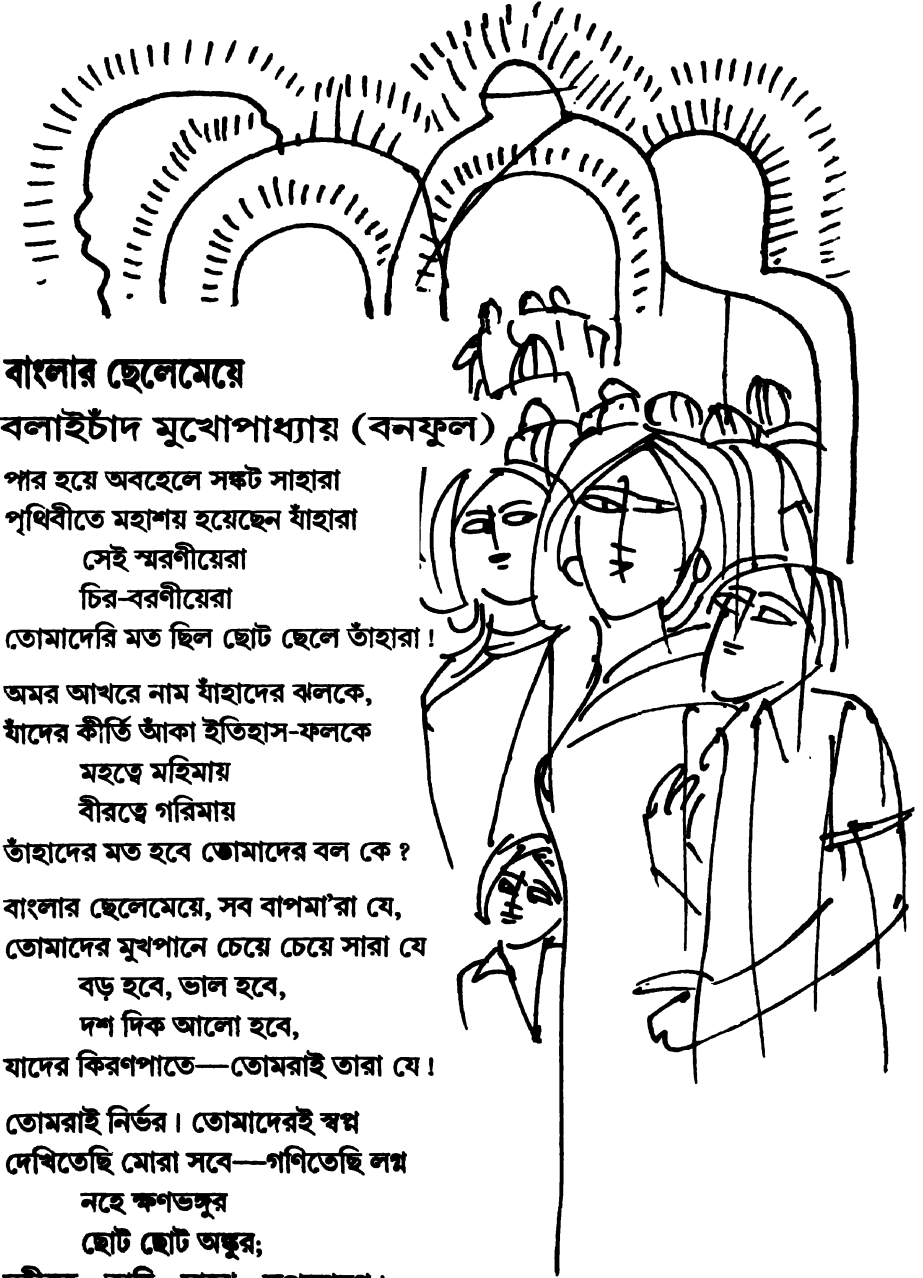 বাংলার ছেলেমেয়ে
বলাইচাঁদ মুখোপাধ্যায় (বনফুল)
পার হয়ে অবহেলে সঙ্কট সাহারা
পৃথিবীতে মহাশয় হয়েছেন যাঁহারা
সেই স্মরণীয়েরা
চির-বরণীয়েরা
তোমাদেরি মত ছিল ছোট ছেলে তাঁহারা!
অমর আখরে নাম যাঁহাদের ঝলকে,
যাঁদের কীর্তি আঁকা ইতিহাস-ফলকে
মহত্বে মহিমায়
বীরত্বে গরিমায়
তাঁহাদের মত হবে তোমাদের বল কে?
বাংলার ছেলেমেয়ে, সব বাপমা'রা যে,
তোমাদের মুখপানে চেয়ে চেয়ে সারা যে
বড় হবে, ভাল হবে,
দশ দিক আলো হবে,
যাদের কিরণপাতে—তোমরাই তারা যে!
তোমরাই নির্ভর। তোমাদেরই স্বপ্ন
দেখিতেছি মোরা সবে—গণিতেছি লগ্ন
নহে ক্ষণভঙ্গুর
ছোট ছোট অঙ্কুর;